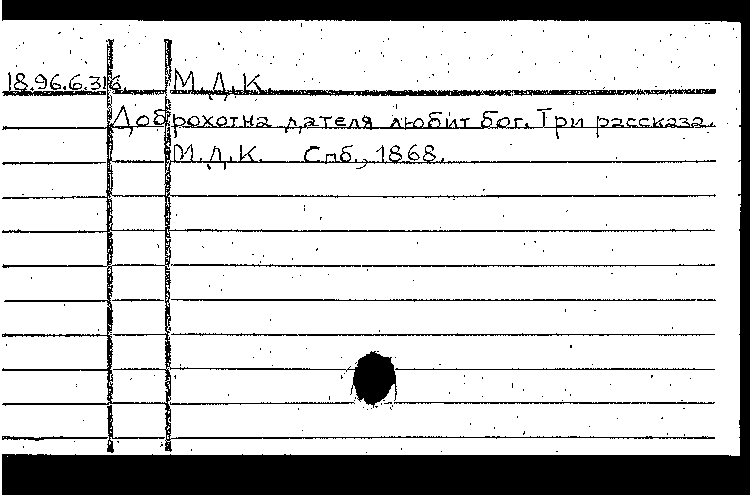 18.96.6.316. М.Д.К.
Доброхотна дателя любит бог. Три рассказа.
М.Д.К. Спб., 1868.